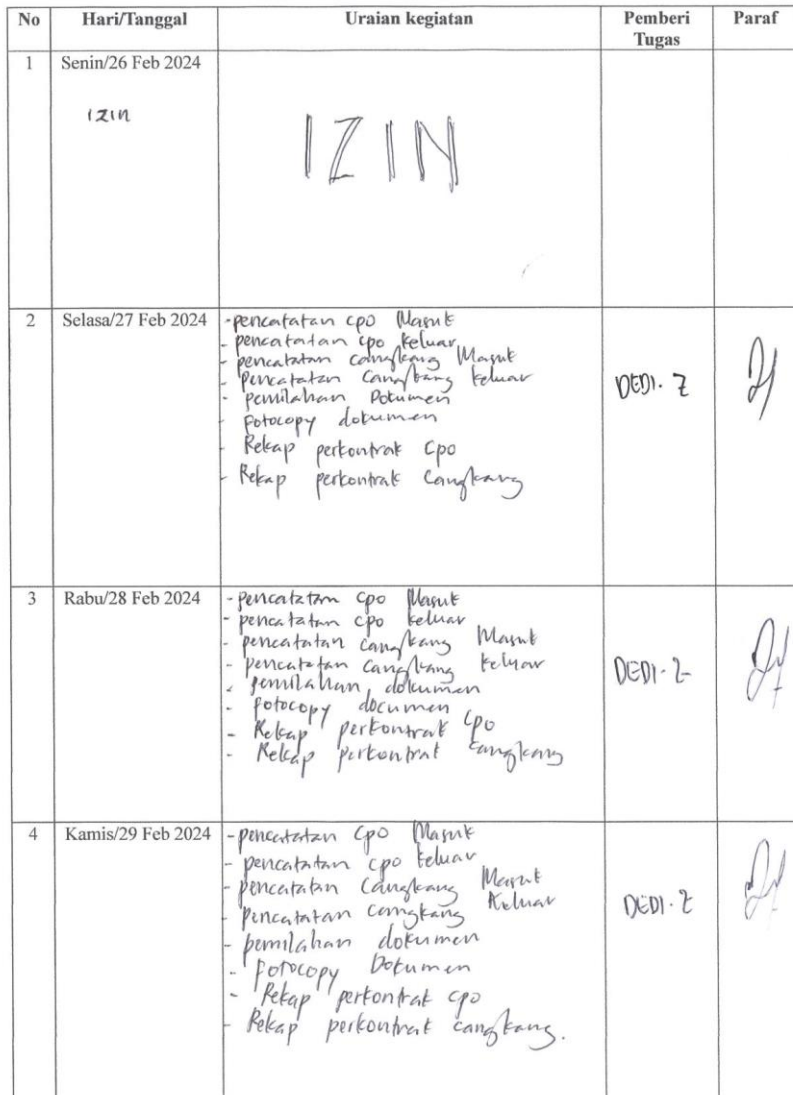 No Hari/Tanggal Uraian kegiatan Pemberi Tugas Paraf
1 Senin/26 Feb 2024
izin
IZIN
2 Selasa/27 Feb 2024
- pencatatan cpo Masuk
- pencatatan cpo keluar
- pencatatan cangkang Masuk
- pencatatan cangkang keluar
- pemilahan Dokumen
- fotocopy dokumen
- Rekap perkontrak Cpo
- Rekap perkontrak Cangkang
DEDI. Z
3 Rabu/28 Feb 2024
- pencatatan cpo Masuk
- pencatatan cpo keluar
- pencatatan cangkang Masuk
- pencatatan cangkang keluar
- pemilahan dokumen
- fotocopy documen
- Rekap perkontrak cpo
- Rekap perkontrat cangkang
DEDI. Z
4 Kamis/29 Feb 2024
- pencatatan Cpo Masuk
- pencatatan cpo keluar
- pencatatan Cangkang Masuk
- pencatatan cangkang Keluar
- pemilahan dokumen
- fotocopy Dokumen
- Rekap perkontrak cpo
- Rekap perkontrak cangkang.
DEDI. Z